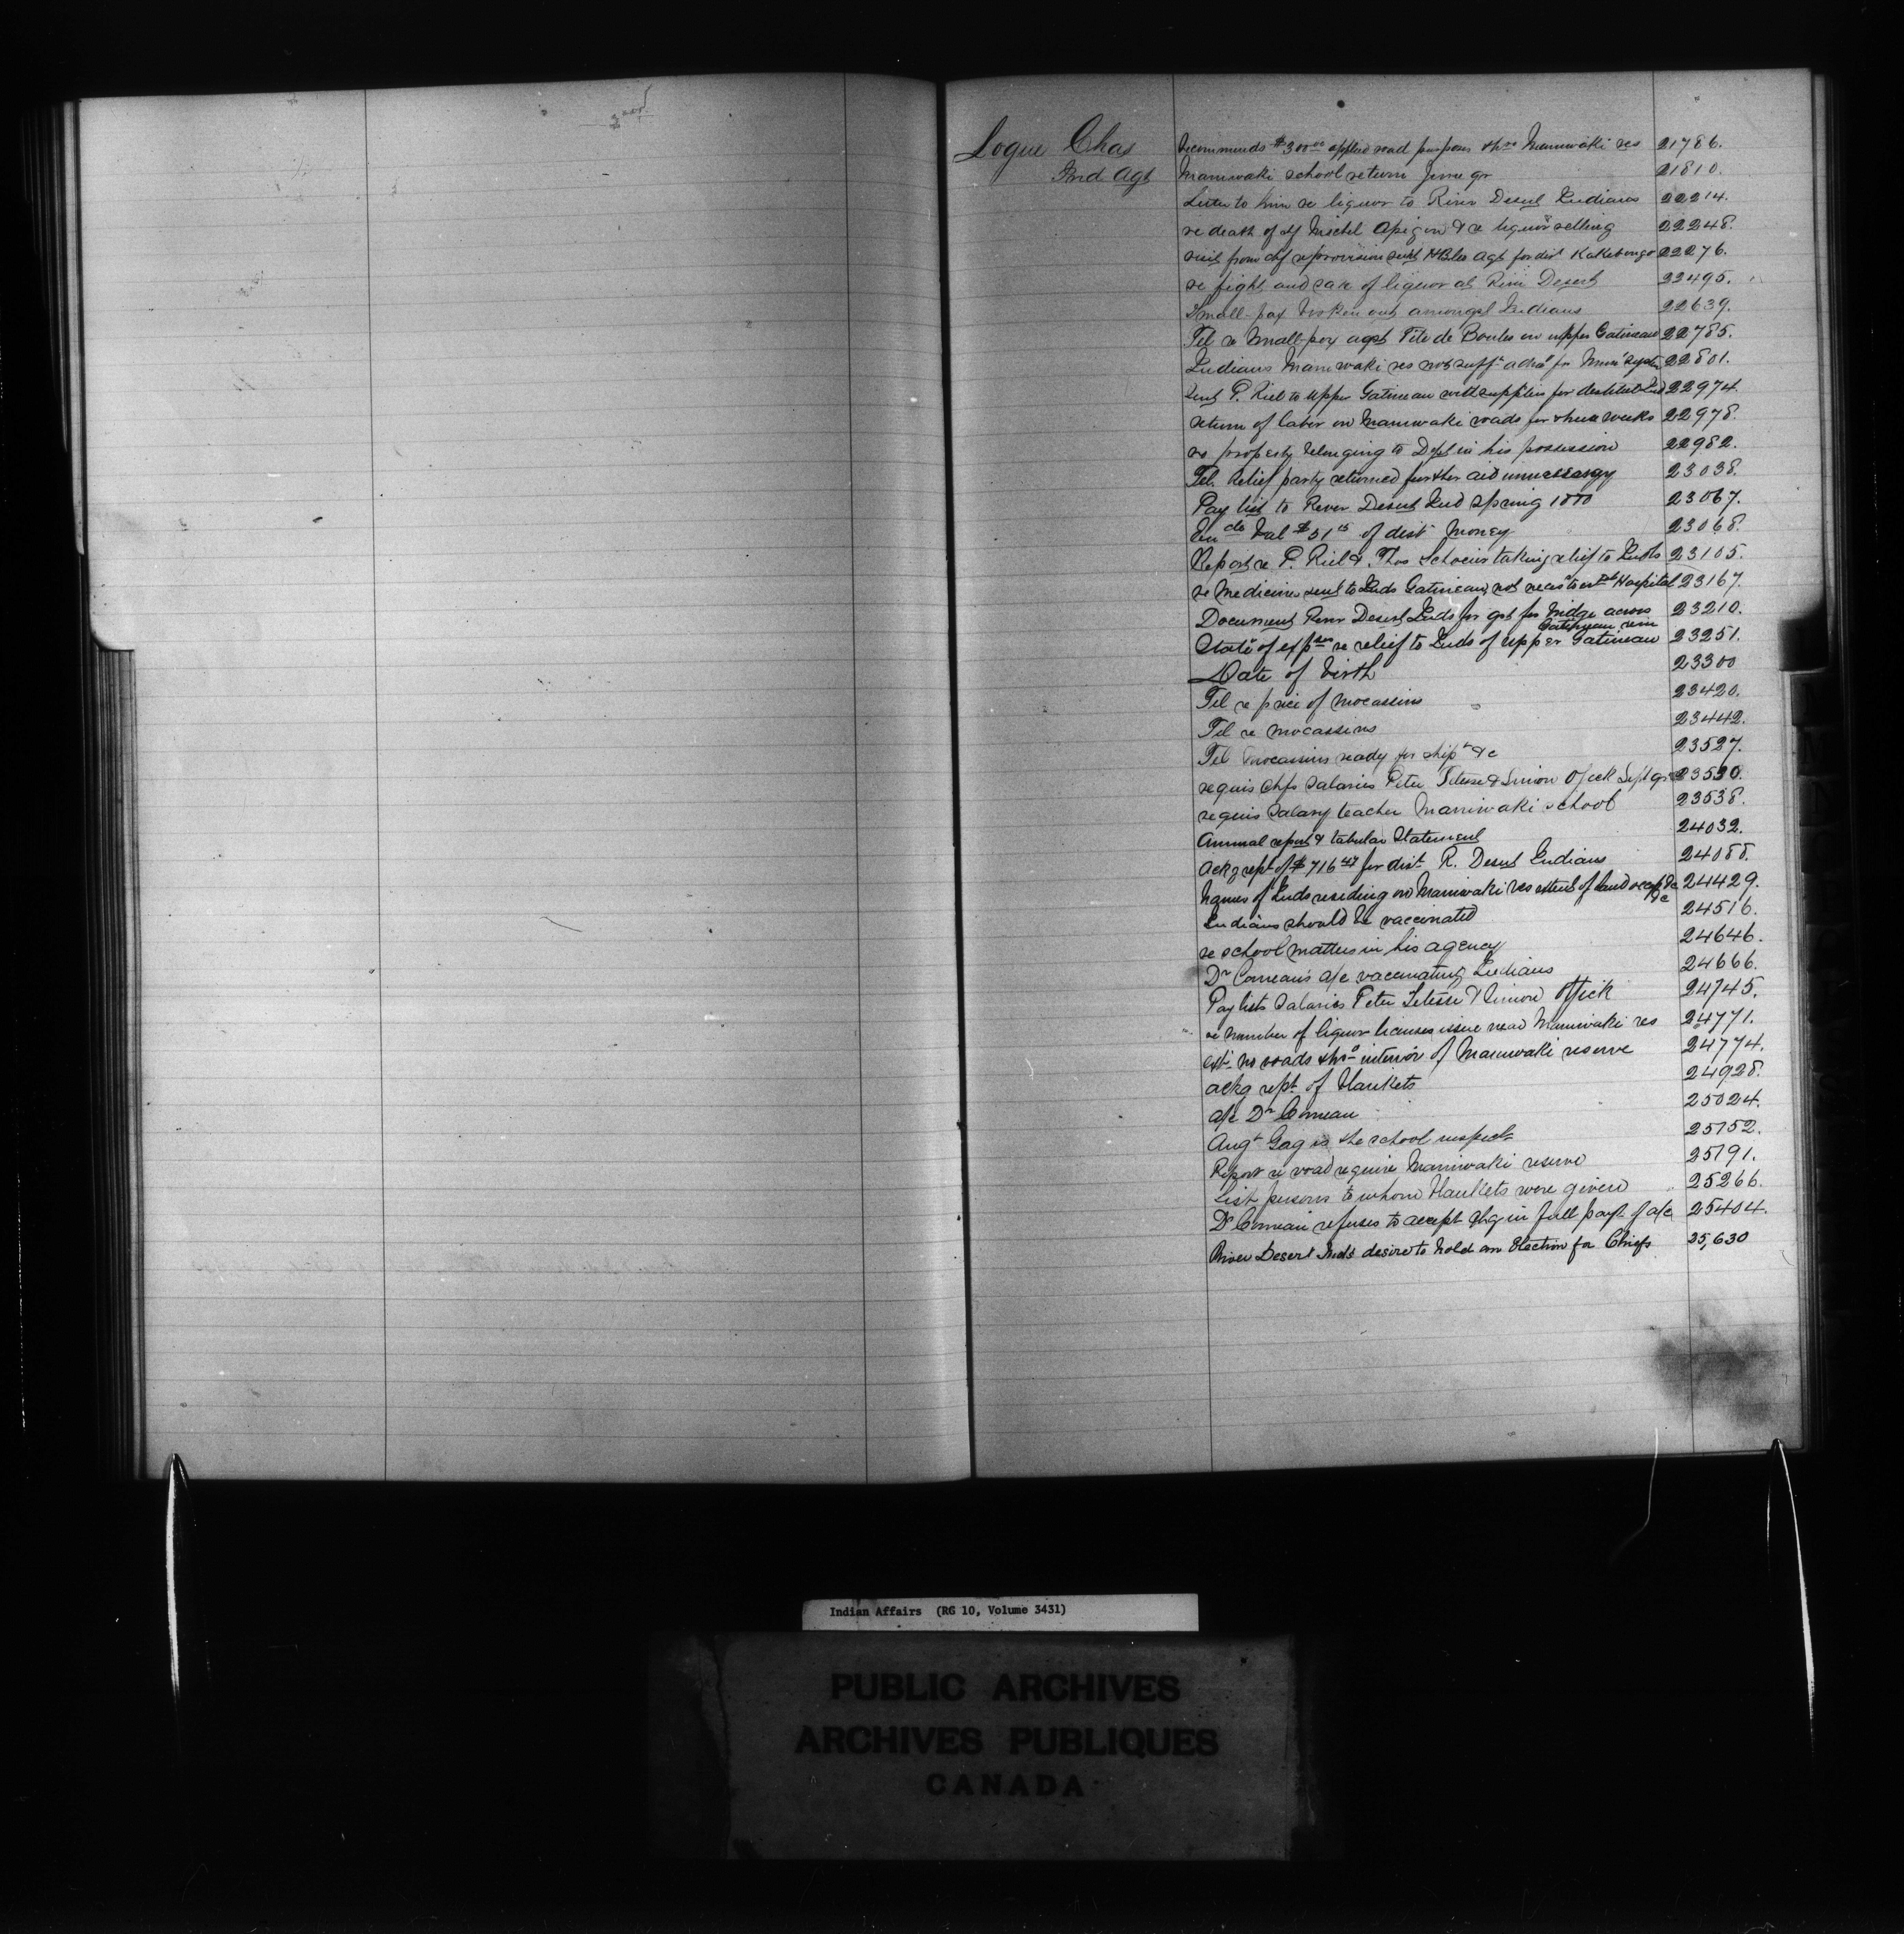 Logue Chas
Ind Agt
Recommends $300.00 applied road purposes thro Maniwaki res 21786.
Maniwaki school return June qr 21810.
Letter to him re liquor to River Desert Indians 22214.
re death of Michel &c liquor selling 22248.
visit from chf re provisions sent HBCo's Agt for dist Kakebonga 22276.
re fight and sale of liquor at River Desert 22495.
Small-pox broken out amongst Indians 22639.
Tel re Small-pox agst Tête de Boules on upper Gatineau 22785.
Indians Maniwaki res not suff adva for System 22801.
sent P. Riel to upper Gatineau with supplies for destitute Ind 22974
return of labor on Maniwaki roads for three weeks 22978.
re property belonging to Dept in his possession 22982.
Tel. Relief party returned further aid unnecessary 23038.
Pay list to River Desert Ind Spring 1880 23067.
do bal $51 of dist money 23068.
Report re P. Riel & Thos taking relief to Inds 23105.
re Medicines sent to Inds Gatineau, not to Hospital 23167.
Document River Desert Inds for gt for bridge across
Gatineau river 23210.
State of expses re relief to Inds of upper Gatineau 23251.
Date of birth 23300
Tel re price of Mocassins 23420.
Tel re mocassins 23442.
Tel mocassins ready for shipt &c 23527.
requis Chfs Salaries Peter Tetesse & Simon Ofick Sept qr 23530.
requis Salary teacher Maniwaki school 23538.
Annual report & tabular Statement 24032.
Ackg rept of $716 for dist R. Desert Indians 24088.
Names of Inds residing on Maniwaki res extent of land occupd &c 24429.
Indians should be vaccinated 24516.
re school matters in his agency 24646.
Dr Comeau's a/c vaccinating Indians 24666.
Pay lists Salaries Peter Tetesse & Simon Ofick 24745.
re number of liquor licenses issue near Maniwaki res 24771.
no roads thro interior of Maniwaki reserve 24774.
ackg rept of blankets 24928.
a/c Dr Comeau 25024.
Augt Gag is the school inspectr 25152.
Report re road require Maniwaki reserve 25191.
list persons to whom blankets were given 25266.
Dr Comeau refuses to accept chq in full payt of a/c 25404.
River Desert Inds desire to hold an Election for Chiefs 25,630
Indian Affairs (RG 10, Volume 3431)
PUBLIC ARCHIVES
ARCHIVES PUBLIQUES
CANADA